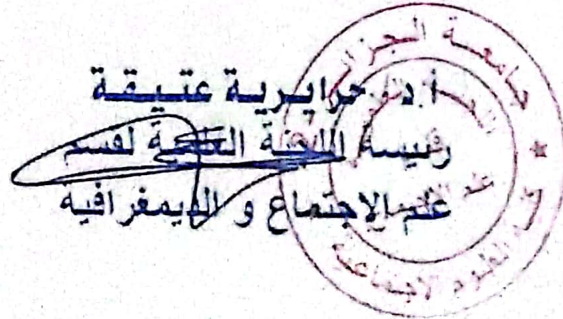 أ.د. حرايرية عتيقة
رئيسة اللجنة العلمية لقسم
علم الاجتماع و الديمغرافية
جامعة الجزائر
كلية العلوم الاجتماعية